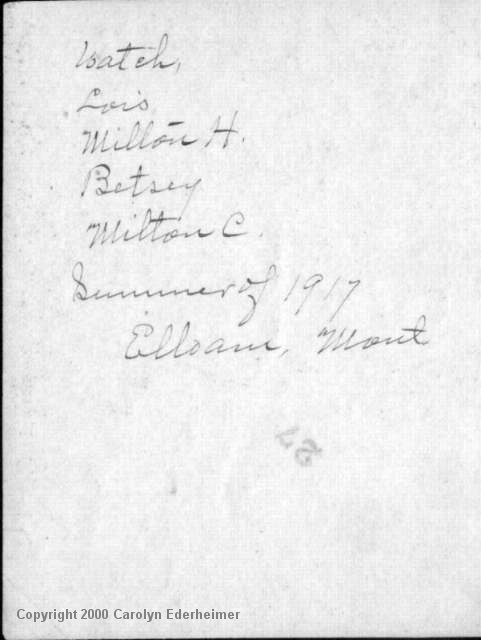 Watch,
Lois
Milton H.
Betsey
Milton C.
Summer of 1917
Elloam, Mont
27
Copyright 2000 Carolyn Ederheimer